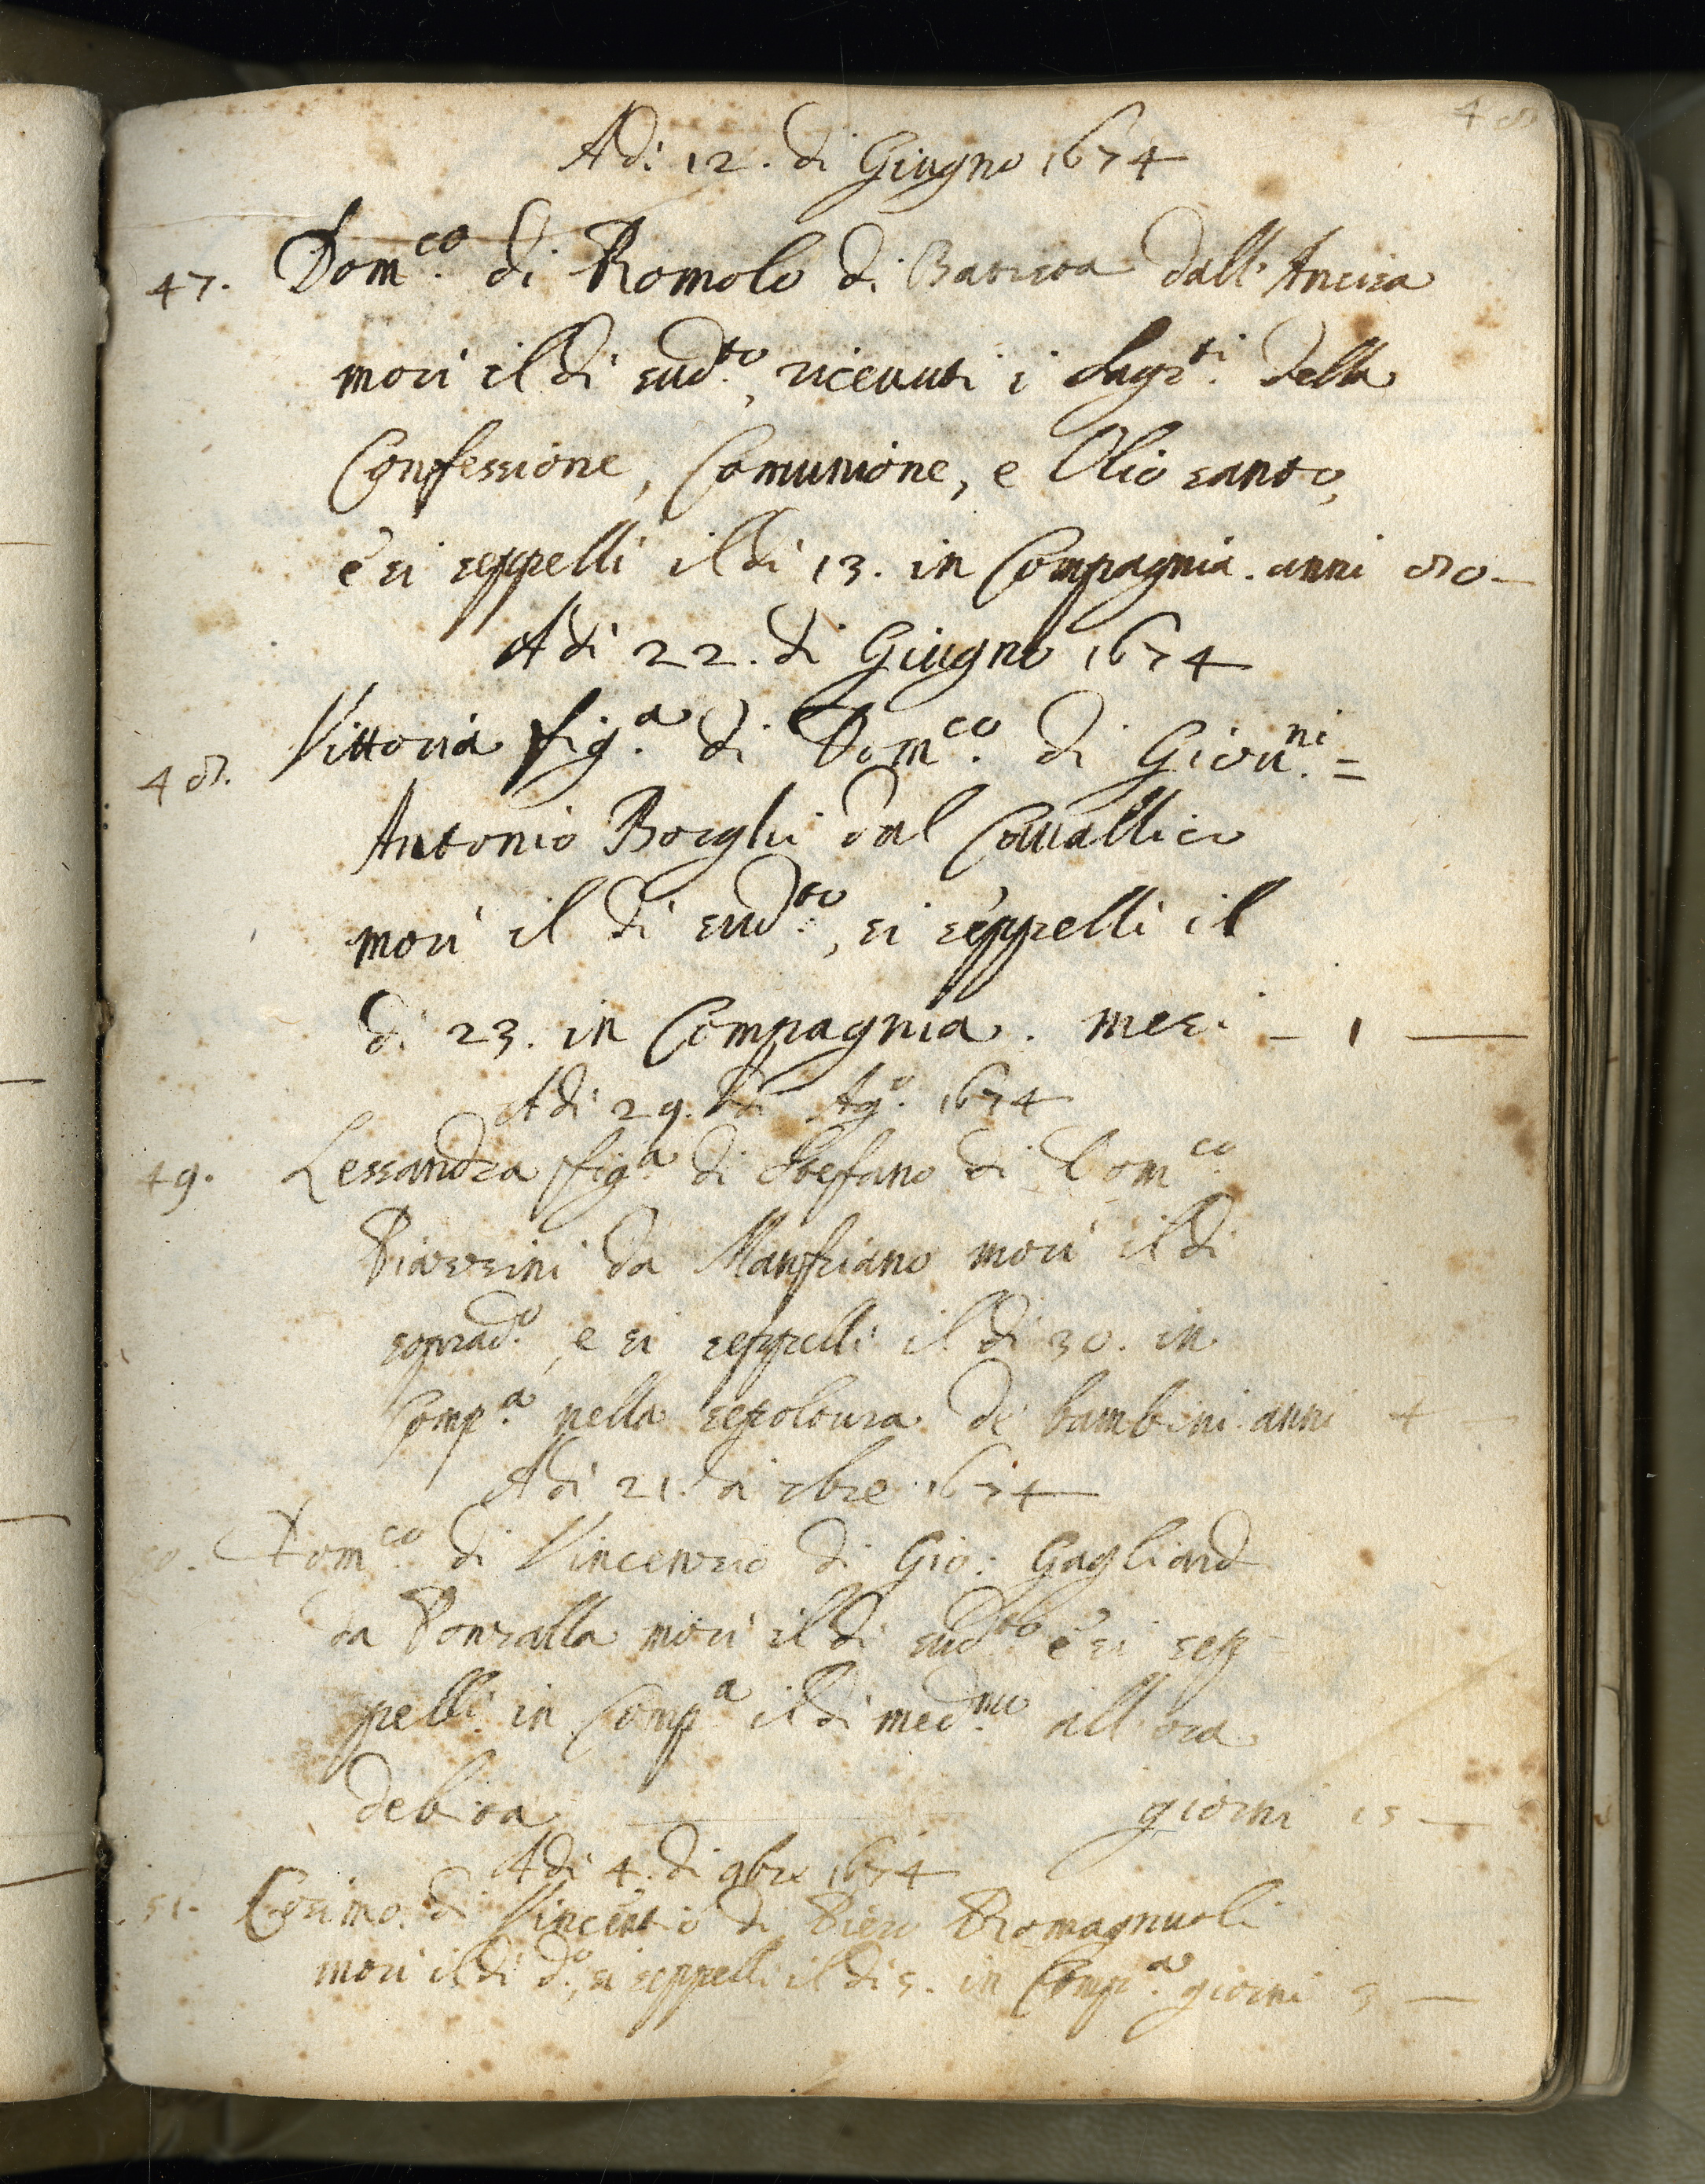 48
Adi 12. di Giugno 1674
47. Dom.co di Romolo di Batista dall'Ancisa
morì il dì sud.to, ricevuti i Sagr.ti della
Confessione, Comunione, e Olio santo,
e si seppellì il dì 13. in Compagnia. anni 80 —
Adi 22. di Giugno 1674
48. Vittoria fig.a di Dom.co di Giova.ni =
Antonio Borghi dal Cavallico
morì il dì sud.to, si seppellì il
dì 23. in Compagnia. mesi — 1 —
Adi 29. di Ag.o 1674
49. Lessandra fig.a di Stefano di Dom.co
da Manfriano morì il dì
soprad.o, e si seppellì il dì 30. in
Comp.a nella sepoltura de bambini anni 4 —
Adi 21. di 7bre 1674
50. Dom.co di Vincenzio di Gio: Gagliard
da Ponzalla morì il dì sud.to e si sep
pellì in Comp.a il dì med.mo all'ora
debita — giorni 15 —
Adi 4. di 9bre 1674
51. Cosimo di Vincentio di Piero Romagnuoli
morì il dì d.o, si seppellì il dì 5. in Comp.a giorni 3 —